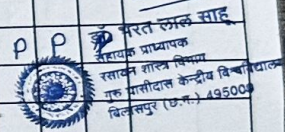 P P डॉ भरत लाल साहू
सहायक प्राध्यापक
रसायन शास्त्र विभाग
गुरु घासीदास केन्द्रीय विश्वविद्यालय
बिलासपुर (छ.ग.) 495009